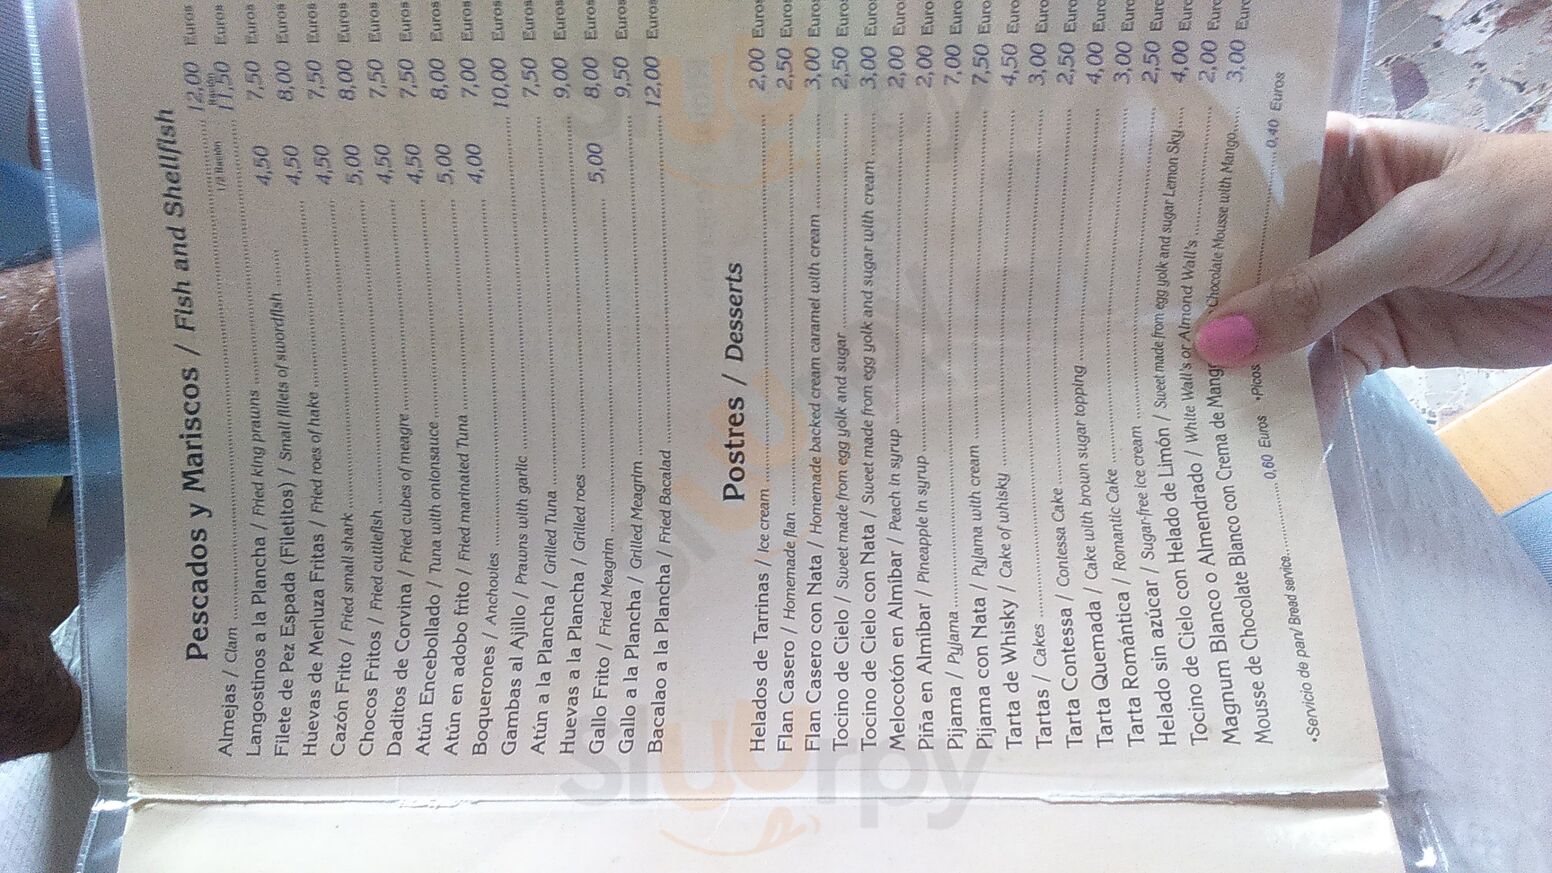 Pescados y Mariscos / Fish and Shellfish
Almejas / Clam 12,00 Euros
1/2 Ración Ración
Langostinos a la Plancha / Fried king prauns 11,50 Euros
Filete de Pez Espada (Filetitos) / Small fillets of swordfish 4,50 7,50 Euros
Huevas de Merluza Fritas / Fried roes of hake 4,50 8,00 Euros
Cazón Frito / Fried small shark 4,50 7,50 Euros
Chocos Fritos / Fried cuttlefish 5,00 8,00 Euros
Daditos de Corvina / Fried cubes of meagre 4,50 7,50 Euros
Atún Encebollado / Tuna with onionsauce 4,50 7,50 Euros
Atún en adobo frito / Fried marinated Tuna 5,00 8,00 Euros
Boquerones / Anchovies 4,00 7,00 Euros
Gambas al Ajillo / Prawns with garlic 10,00 Euros
Atún a la Plancha / Grilled Tuna 7,50 Euros
Huevas a la Plancha / Grilled roes 9,00 Euros
Gallo Frito / Fried Meagrim 5,00 8,00 Euros
Gallo a la Plancha / Grilled Meagrim 9,50 Euros
Bacalao a la Plancha / Fried Bacalad 12,00 Euros
Postres / Desserts
Helados de Tarrinas / Ice cream 2,00 Euros
Flan Casero / Homemade flan 2,50 Euros
Flan Casero con Nata / Homemade backed cream caramel with cream 3,00 Euros
Tocino de Cielo / Sweet made from egg yolk and sugar 2,50 Euros
Tocino de Cielo con Nata / Sweet made from egg yolk and sugar with cream 3,00 Euros
Melocotón en Almíbar / Peach in syrup 2,00 Euros
Piña en Almíbar / Pineapple in syrup 2,00 Euros
Pijama / Pyjama 7,00 Euros
Pijama con Nata / Pyjama with cream 7,50 Euros
Tarta de Whisky / Cake of whisky 4,50 Euros
Tartas / Cakes 3,00 Euros
Tarta Contessa / Contessa Cake 2,50 Euros
Tarta Quemada / Cake with brown sugar topping 4,00 Euros
Tarta Romántica / Romantic Cake 3,00 Euros
Helado sin azúcar / Sugar-free ice cream 2,50 Euros
Tocino de Cielo con Helado de Limón / Sweet made from egg yolk and sugar Lemon Sky 4,00 Euros
Magnum Blanco o Almendrado / White Wall's or Almond Wall's 2,00 Euros
Mousse de Chocolate Blanco con Crema de Mang Chocolate Mousse with Mango 3,00 Euros
•Servicio de pan/ Bread service 0,60 Euros •Picos 0,40 Euros
Sluurpy
Sluurpy
Sluurpy